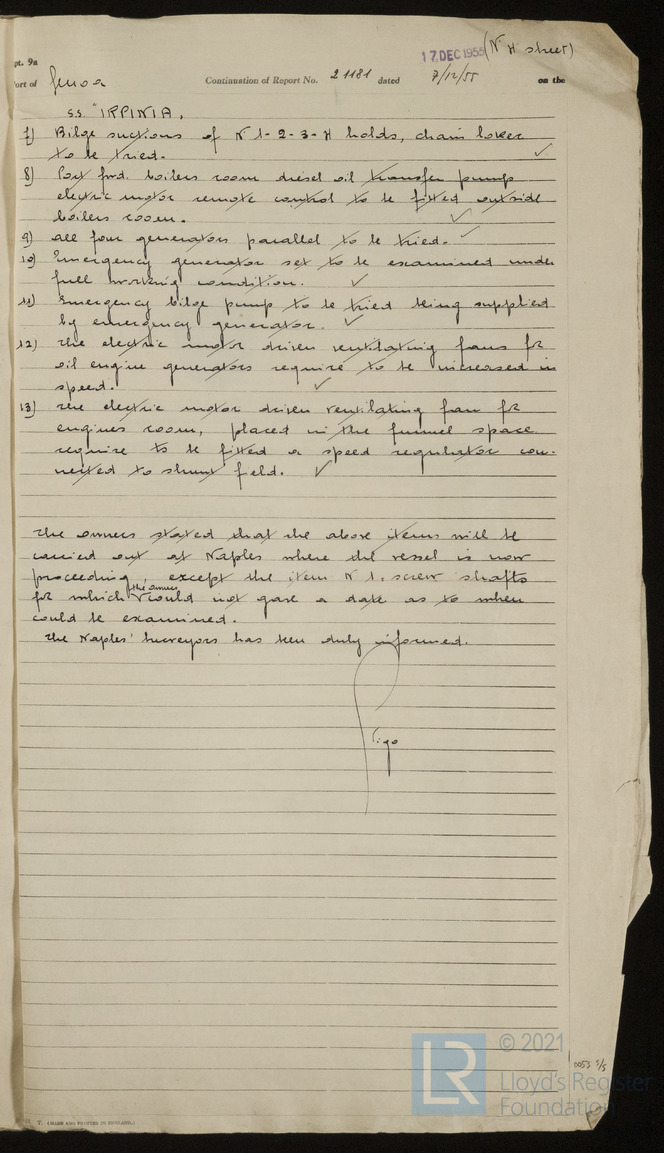 pt. 9a
17 DEC 1955 (Nº 4 sheet)
ort of Genoa Continuation of Report No. 21181 dated 7/12/55 on the
S.S. "IRPINIA,
7) Bilge suctions of Nº 1-2-3-4 holds, chain locker
to be tried.
8) Port fwd. boilers room diesel oil transfer pump
electric motor remote control to be fitted outside
boilers room.
9) all four generators parallel to be tried.
10) Emergency generator set to be examined under
full working condition.
11) Emergency bilge pump to be tried being supplied
by emergency generator.
12) The electric motor driven ventilating fans for
oil engine generators require to be increased in
speed.
13) The electric motor driven ventilating fan for
engines room, placed in the funnel space
require to be fitted a speed regulator con-
nected to shunt field.
The owners stated that the above items will be
carried out at Naples where the vessel is now
proceeding, except the item Nº 1. screw shafts
for which the owners could not gave a date as to when
could be examined.
The Naples' Surveyors has been duly informed.
0053 5/5
7. (MADE AND PRINTED IN ENGLAND.)
LR © 2021
Lloyd's Register
Foundation